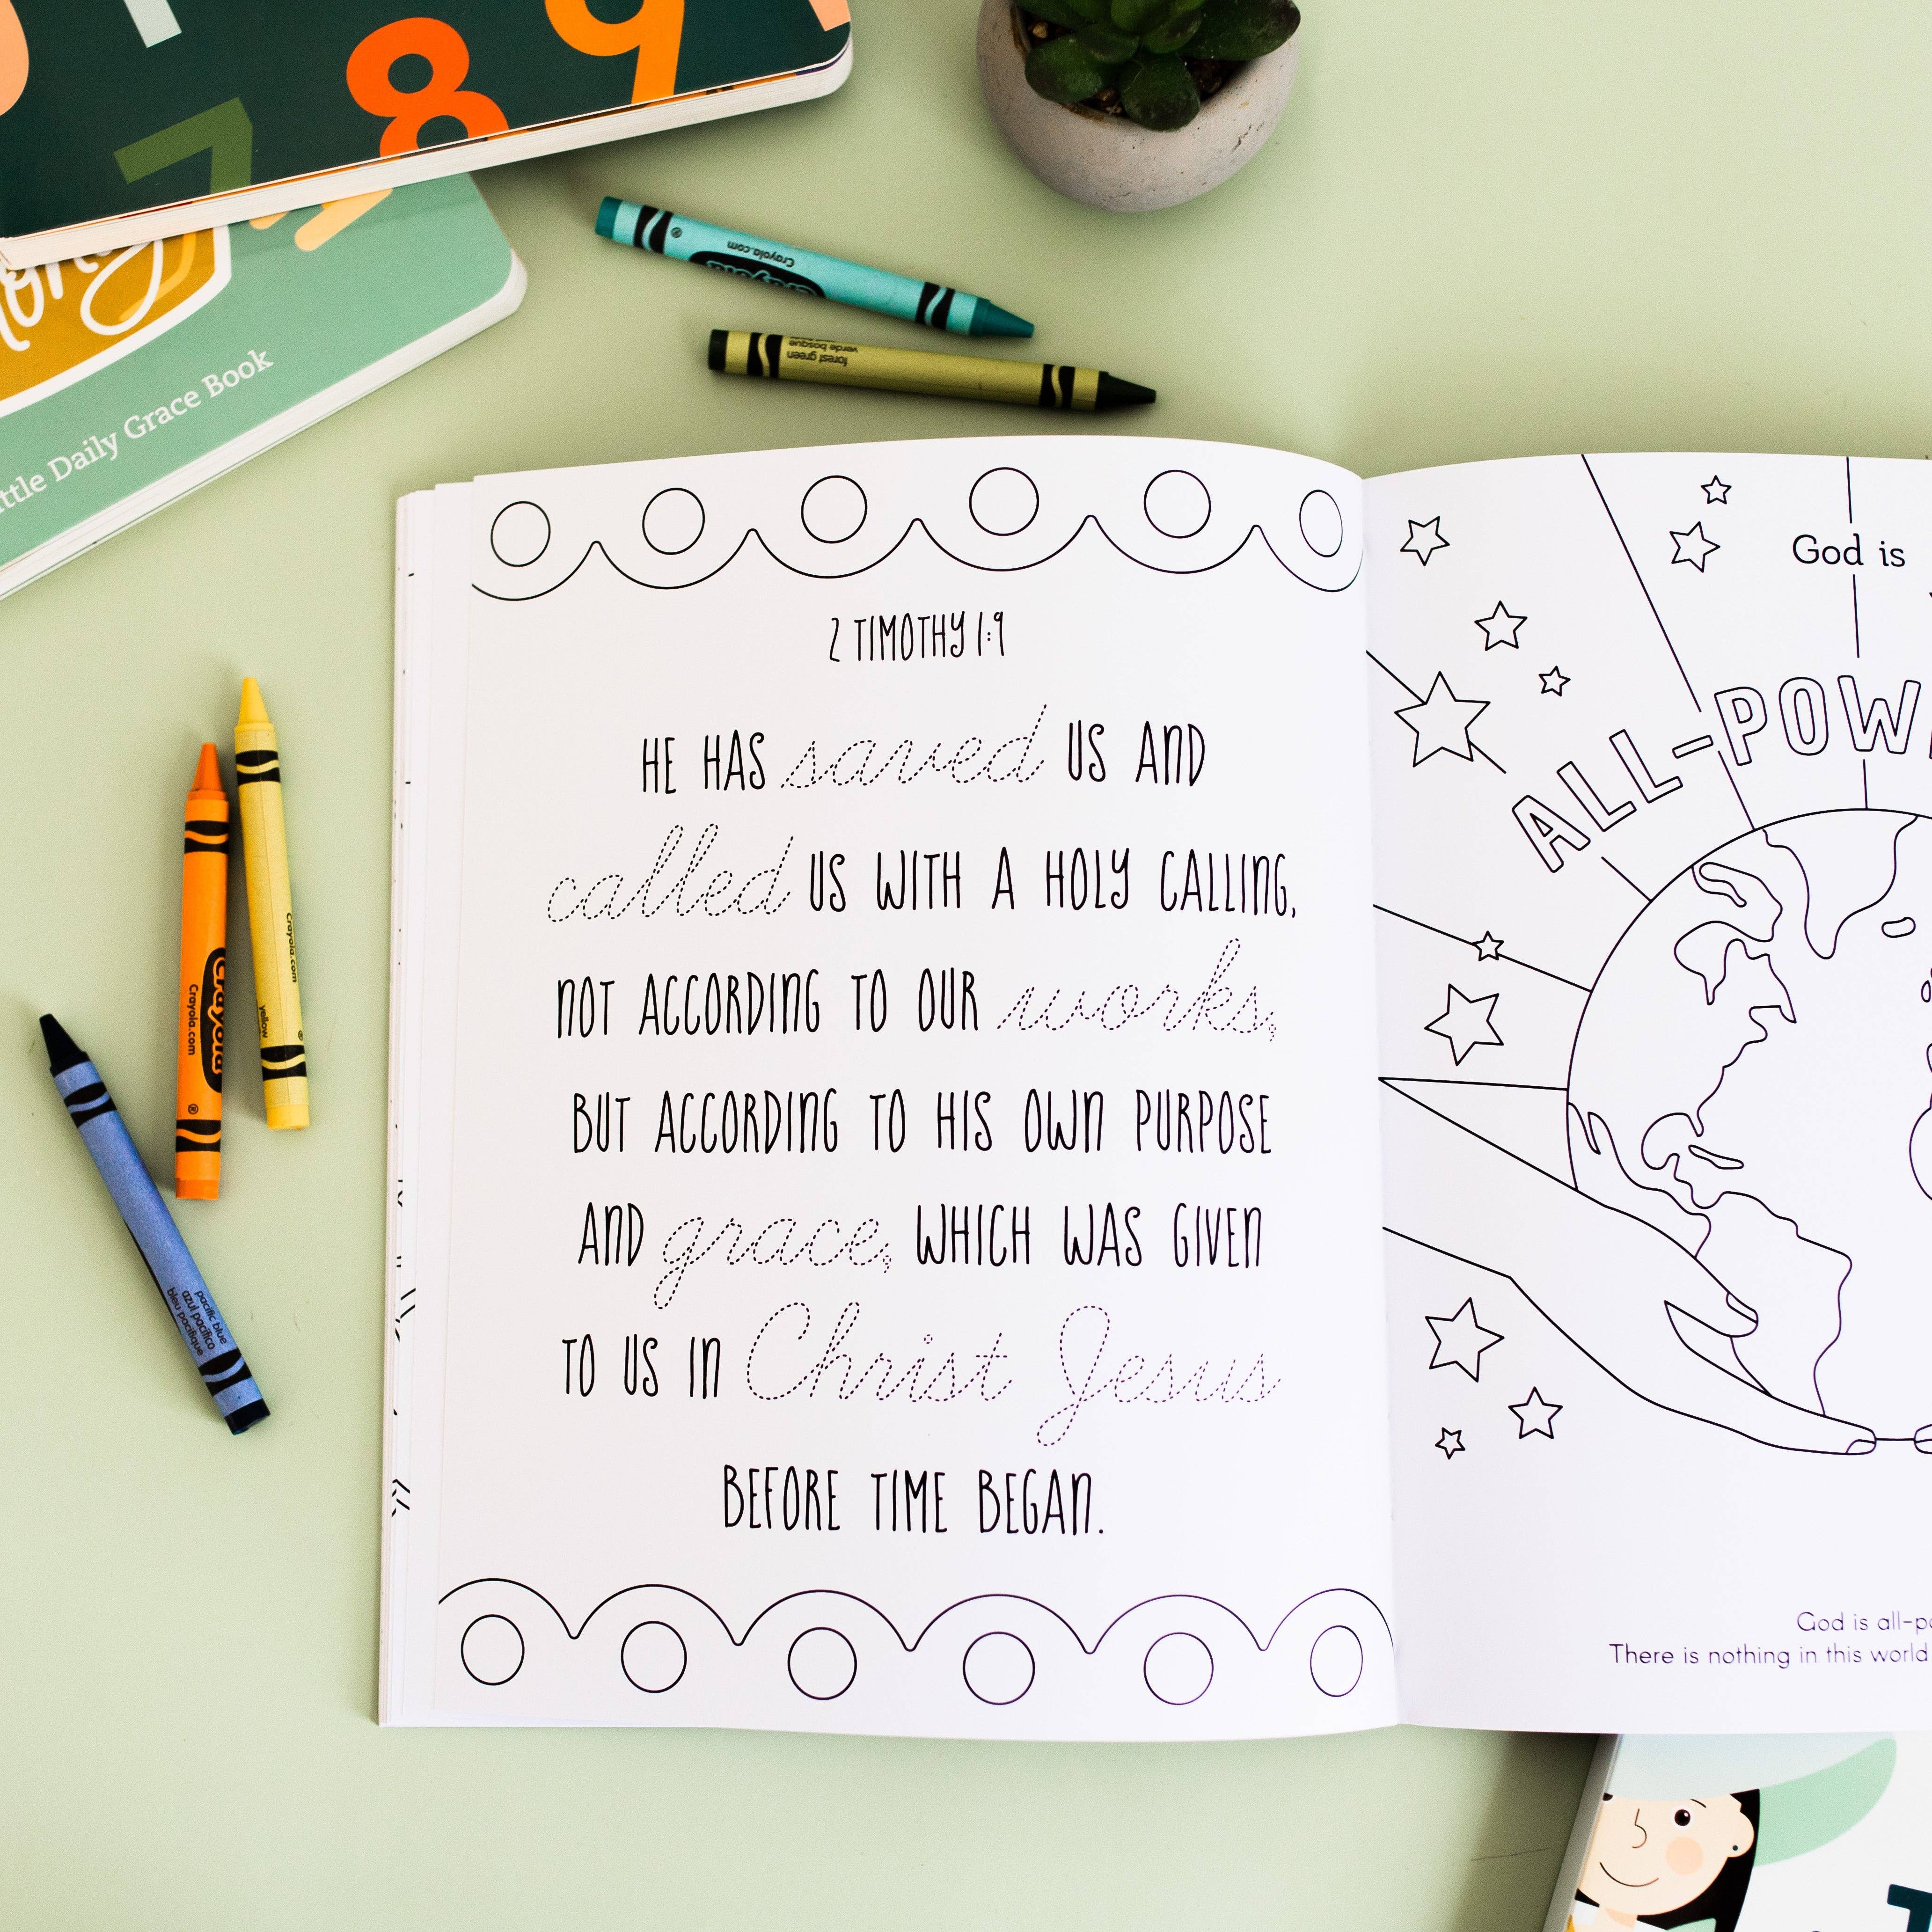 7 8 9
Daily Grace Book
Crayola.com
Crayola
forest green
verde bosque
2 TIMOTHY 1:9
HE HAS saved US AND
called US WITH A HOLY CALLING,
NOT ACCORDING TO OUR works,
BUT ACCORDING TO HIS OWN PURPOSE
AND grace, WHICH WAS GIVEN
TO US IN Christ Jesus
BEFORE TIME BEGAN.
God is
ALL-POW
God is all-po
There is nothing in this world
Crayola
Crayola.com
Crayola.com
yellow
pacific blue
azul pacífico
bleu pacifique